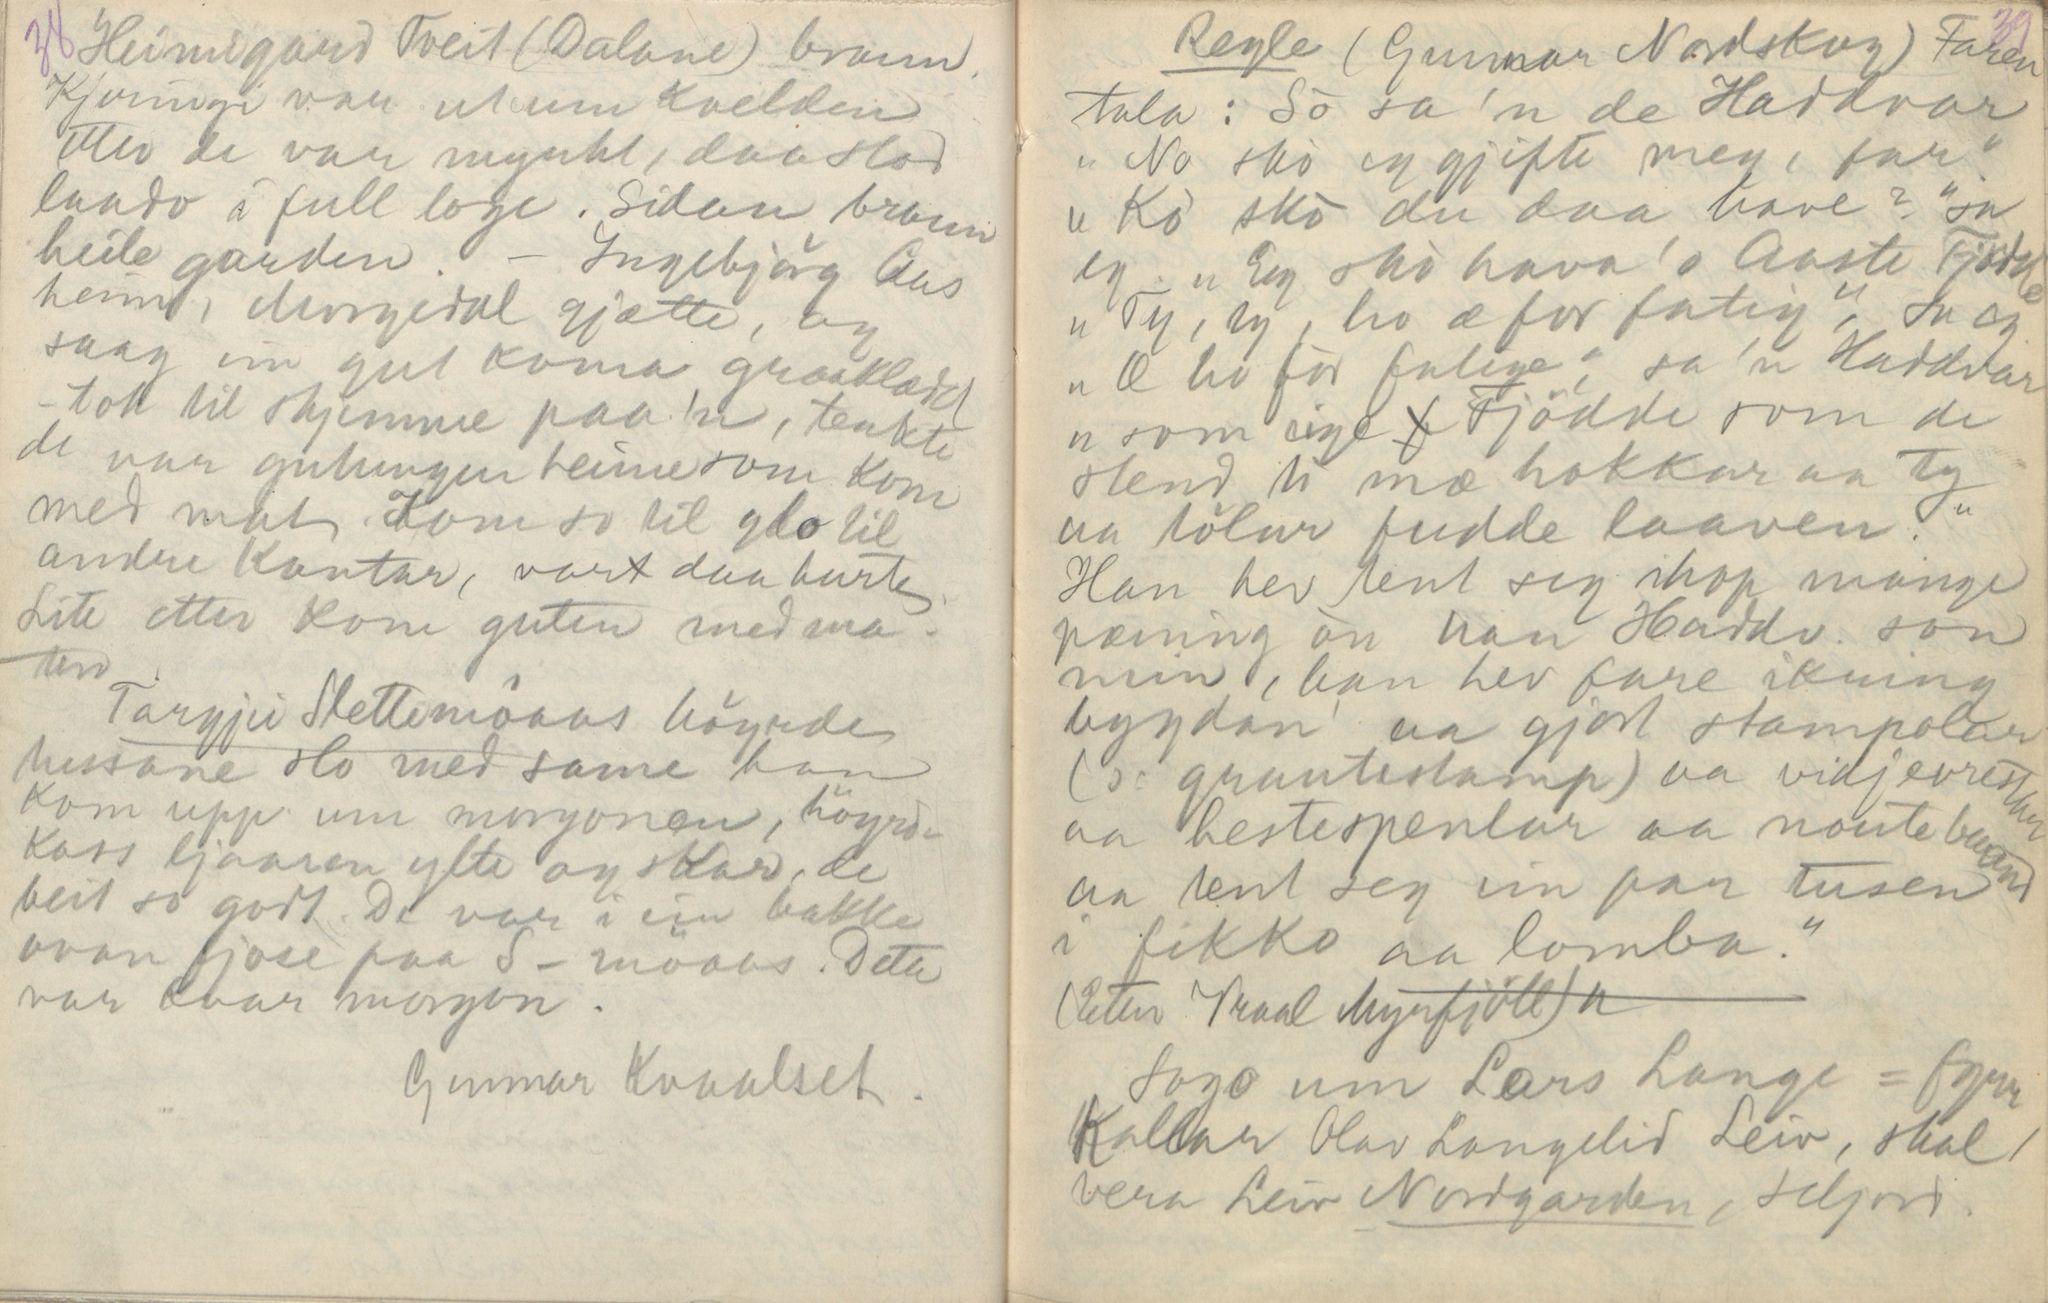 38
Heimigard Tveit (Dalane) brann.
Kjeringi var ut um kvelden
etter de var myrkt, daa stod
laado i full loge. Sidan brann
heile garden. – Ingebjörg Aas
heim, Morgedal gjætte, og
saag ein gut koma graaklædd
- tok til skjemme paa 'n, tenkte
de var gutungen heime som kom
med mat. Kom so til glo til
andre kantar, vart daa burte.
Lite etter kom guten med ma-
ten.
Targjei Slettemöaas höyrde
tussane slo med same han
kom upp um morgonen, höyrde
koss ljaaren ylte og skar, de
beit so godt. De var i ein bakke
ovan fjose paa S-möaas. Dette
var kvar morgon.
Gunnar Kvaalset.
39
Regle (Gunnar Nordskog) Faren
tala: So sa 'n de Haddvar
" No sko eg gjifte meg, far"
" Ko sko du daa have?" sa
eg. " Eg sko hava 'o Aaste Fjödde
" Ty, ty, ho æ for fatig", sa eg
" Æ ho för fatige", sa 'n Haddvar
" som eige Fjödde som de
stend ti mæ hokkar aa ty
aa tölar fudde laaven."
Han hev tent seg ihop mange
pæning òn han Haddv. son
min, han hev fare ikring
bygdån aa gjort stampolar
(ɔ: grautestamp) aa vidjevrestar
aa hestespenlar aa nautebaand
aa tent seg ein par tusen
i fikko aa lomba."
(Etter Vraal Myrfjöll)
Sogo um Lars Lange = fyrr
Kallar Olav Langelid Leiv, skal
vera Leiv Nordgarden, Seljord.